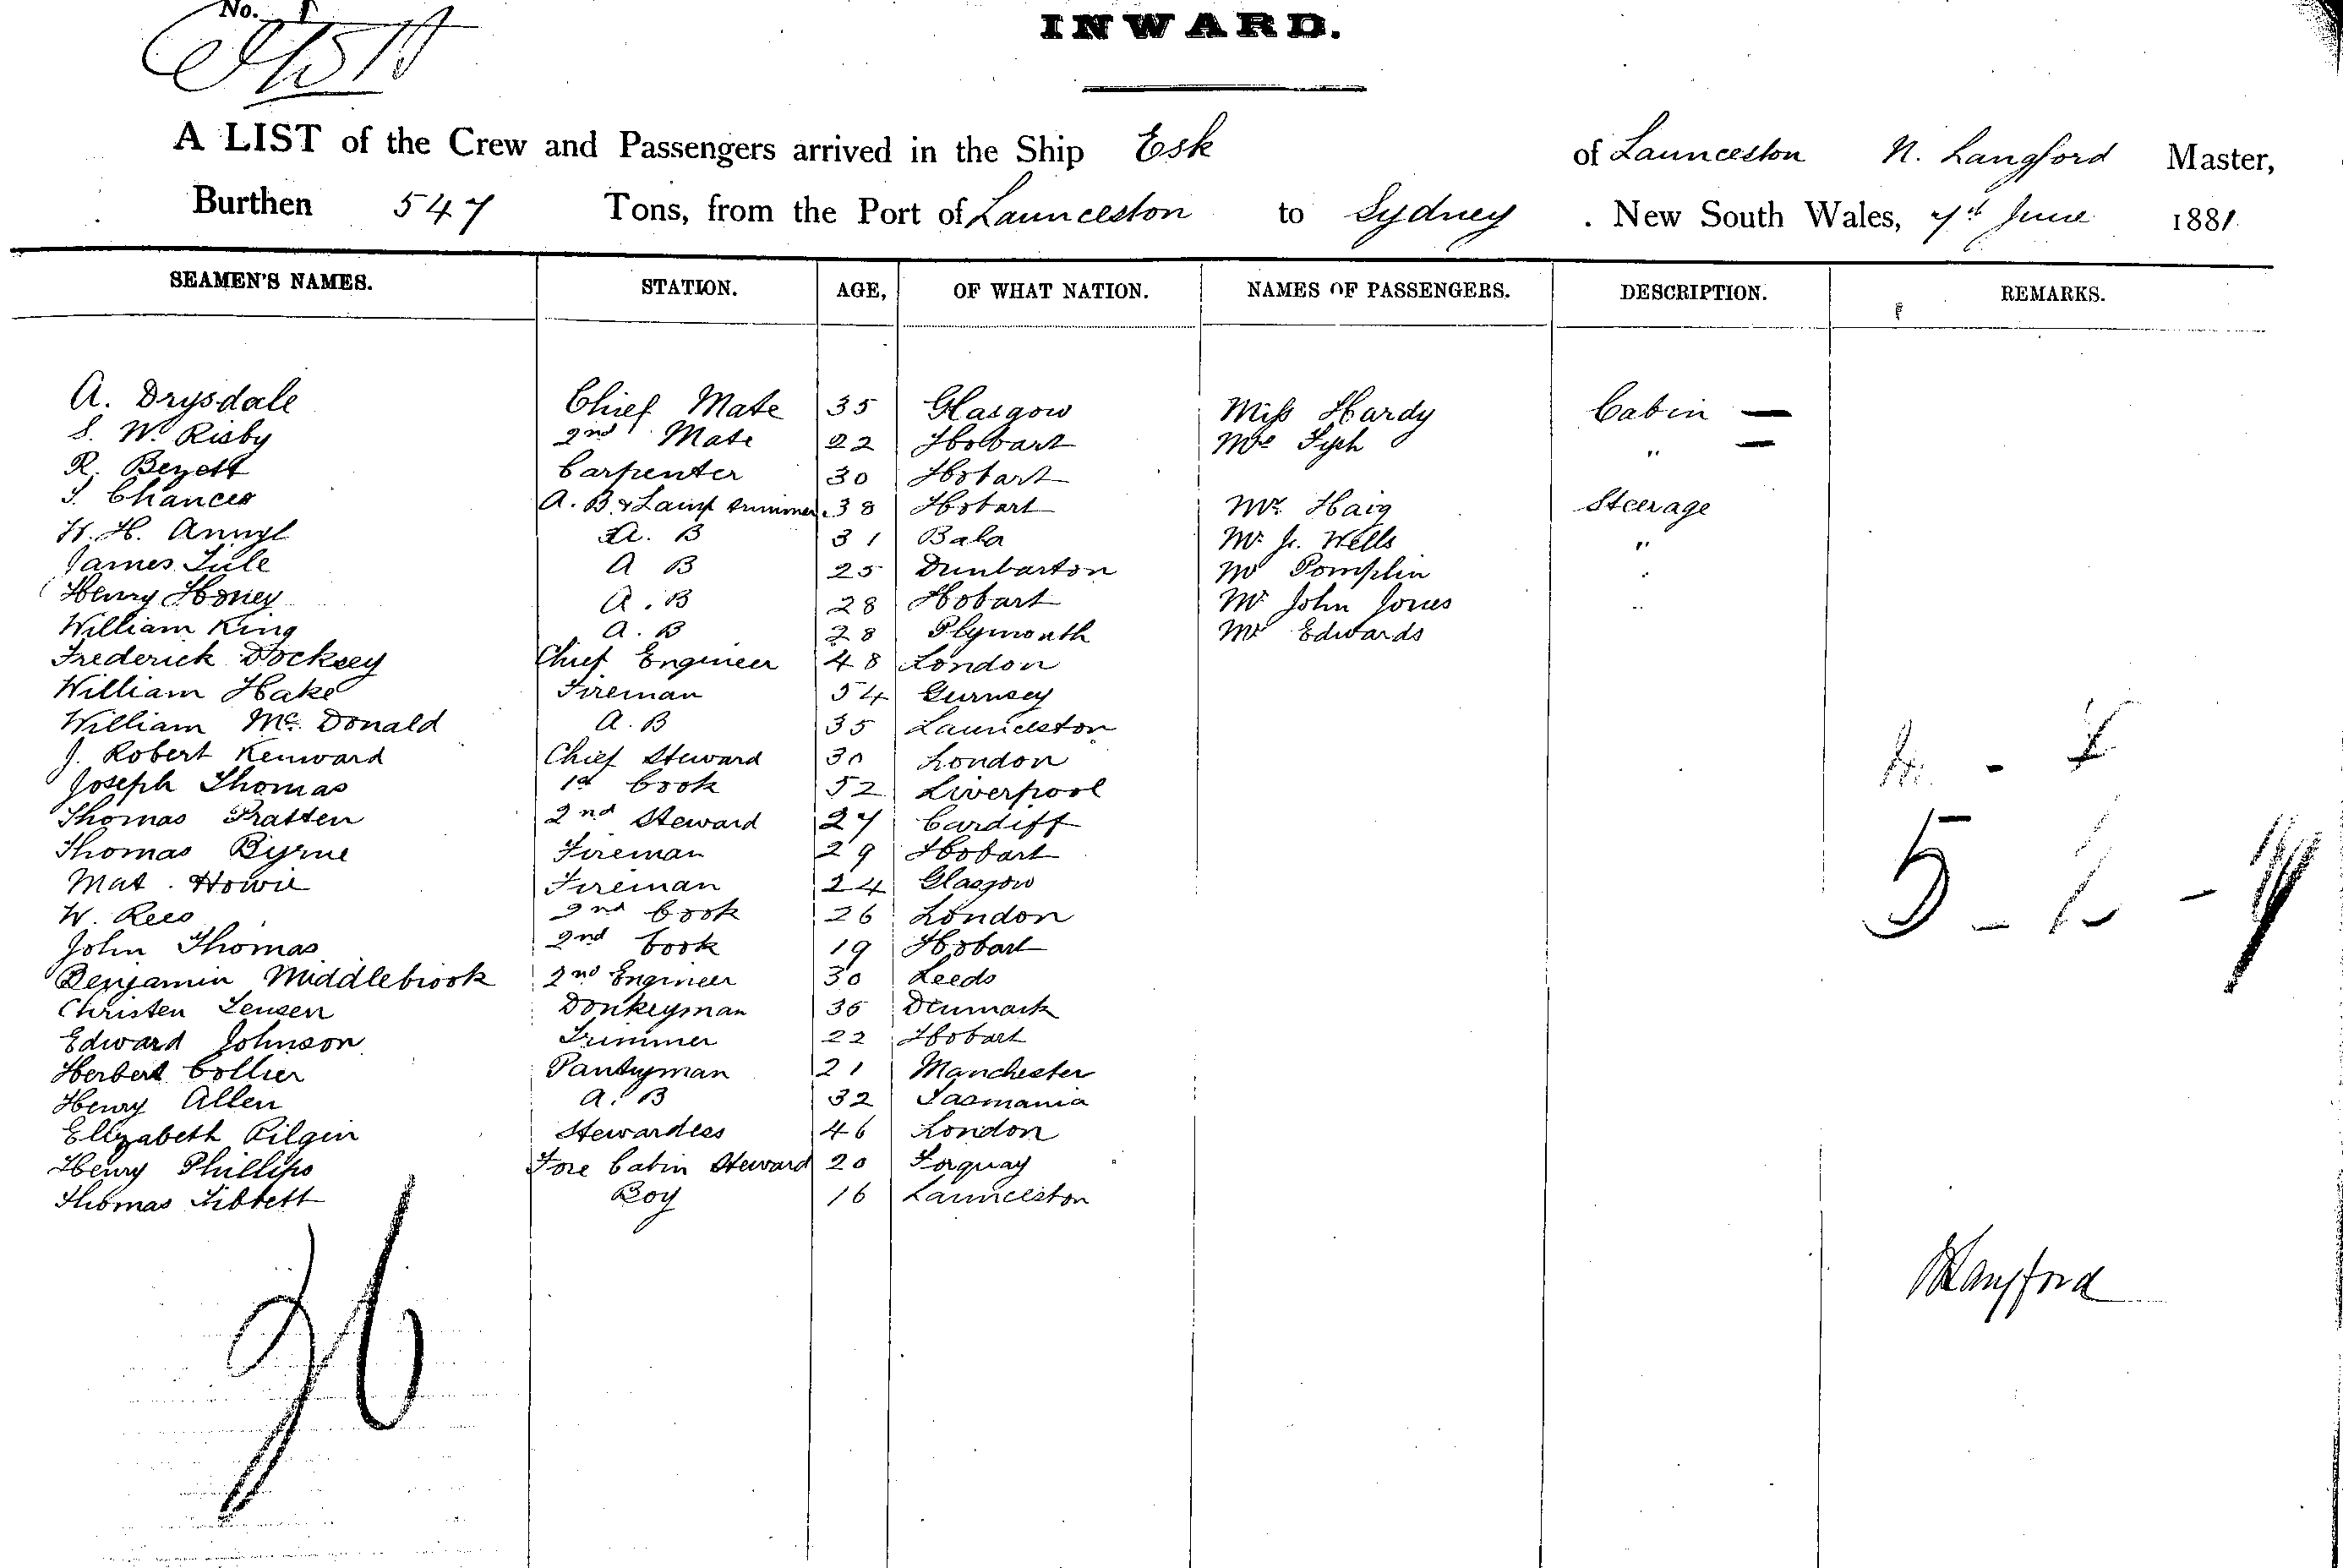 No. 1
INWARD.
A LIST of the Crew and Passengers arrived in the Ship Esk of Launceston N. Langford Master,
Burthen 547 Tons, from the Port of Launceston to Sydney . New South Wales, 7th June 1881
SEAMEN'S NAMES. STATION. AGE, OF WHAT NATION. NAMES OF PASSENGERS. DESCRIPTION. REMARKS.
A. Drysdale Chief Mate 35 Glasgow Miss Hardy Cabin —
S. W. Risby 2nd Mate 22 Hobart Mrs Fysh " —
R. Bezett Carpenter 30 Hobart
S. Chances A. B & Lamp trimmer 38 Hobart Mr. Haig Steerage
H. H. Annyl A. B 31 Bala Mr Js. Wells "
James Tule A B 25 Dunbarton Mr Pomplin "
Henry Honey A. B 28 Hobart Mr John Jones "
William King A. B 28 Plymouth Mr Edwards
Frederick Docksey Chief Engineer 48 London
William Hake Fireman 54 Gurnsey
William Mc. Donald A. B 35 Launceston
J. Robert Kenward Chief Steward 30 London
Joseph Thomas 1st Cook 52 Liverpool
Thomas Pratten 2nd Steward 27 Cardiff
Thomas Byrne Fireman 29 Hobart
Mat. Howie Fireman 24 Glasgow
W. Rees 2nd Cook 26 London
John Thomas 2nd Cook 19 Hobart
Benjamin Middlebrook 2nd Engineer 30 Leeds
Christen Jensen Donkeyman 36 Denmark
Edward Johnson Trimmer 22 Hobart
Herbert Collier Pantryman 21 Manchester
Henry Allen A. B 32 Tasmania
Elizabeth Pilgin Stewardess 46 London
Henry Phillips Fore Cabin Steward 20 Torquay
Thomas Tibbett Boy 16 Launceston
5 - 2 - 7
26
N Langford